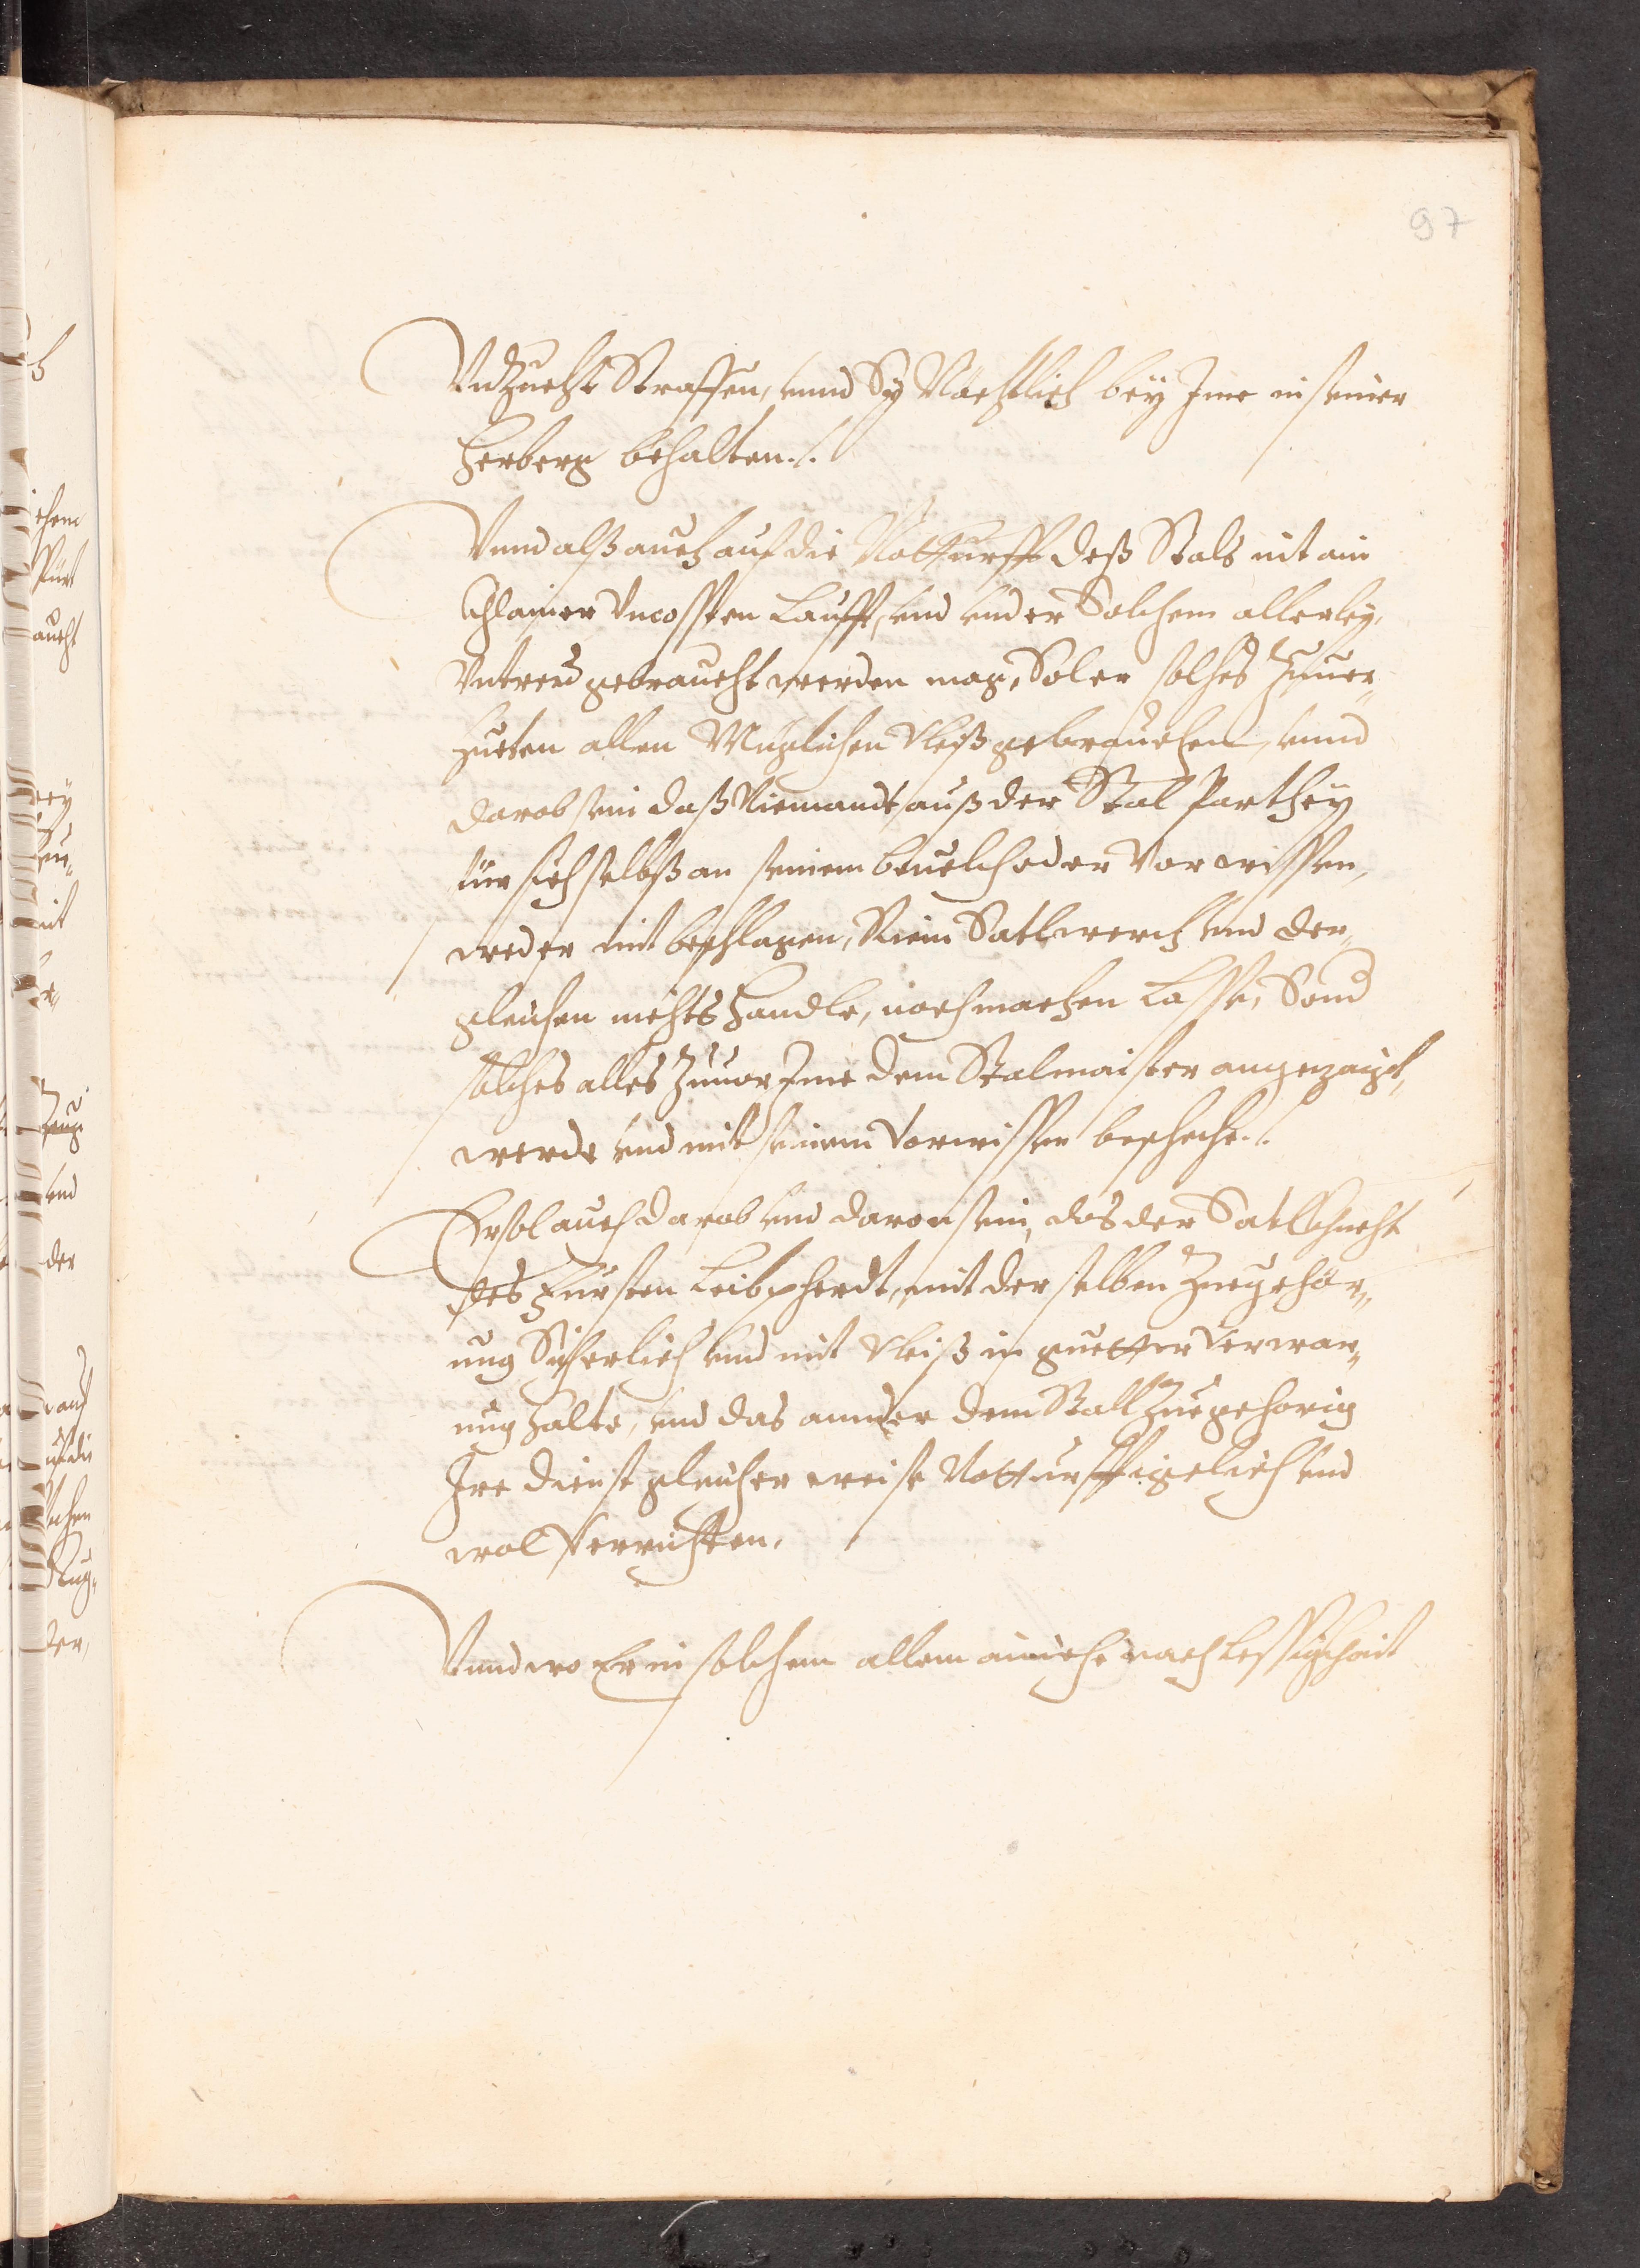 97
Vnzucht Straffen, vnnd Sy Nächtlich bey Ime in seiner
Herberg behalten./.
Vnnd alß auch auf die Notturfft deß Stals nit ain
Chlainer Vncossten Laufft, vnd vnder Solchem allerley,
Vntreu gebraucht werden mag, Sol er solches Zuuer„
hueten allen Müglichen Vleiß gebrauchen, vnnd
darob sein daß Niemandt auß der Stal Parthey
für sich selbst an seinem beuelch oder Vorwissen,
weder mit beschlagen, Riem Satlwerch vnd der„
gleichen nichts handle, noch machen Lasse, Sond
solches alles Zuuor Ime dem Stalmaister angezaigt,
werde vnd mit seinem Vorwissen beschehe./.
Er sol auch darob vnd daran sein, das der Satlkhnecht
des Fürsten Leibpherdt, mit derselben Zuegehör„
ung Sicherlich vnd mit Vleiß in guetter Verwar„
ung halte, vnd das annder dem Stall Zuegehorig
Ire dienst gleicher weise Notturfftigclich vnd
wol Verrichten.
Vnnd wo Er in solchem allem ainiche nachlessigkhait